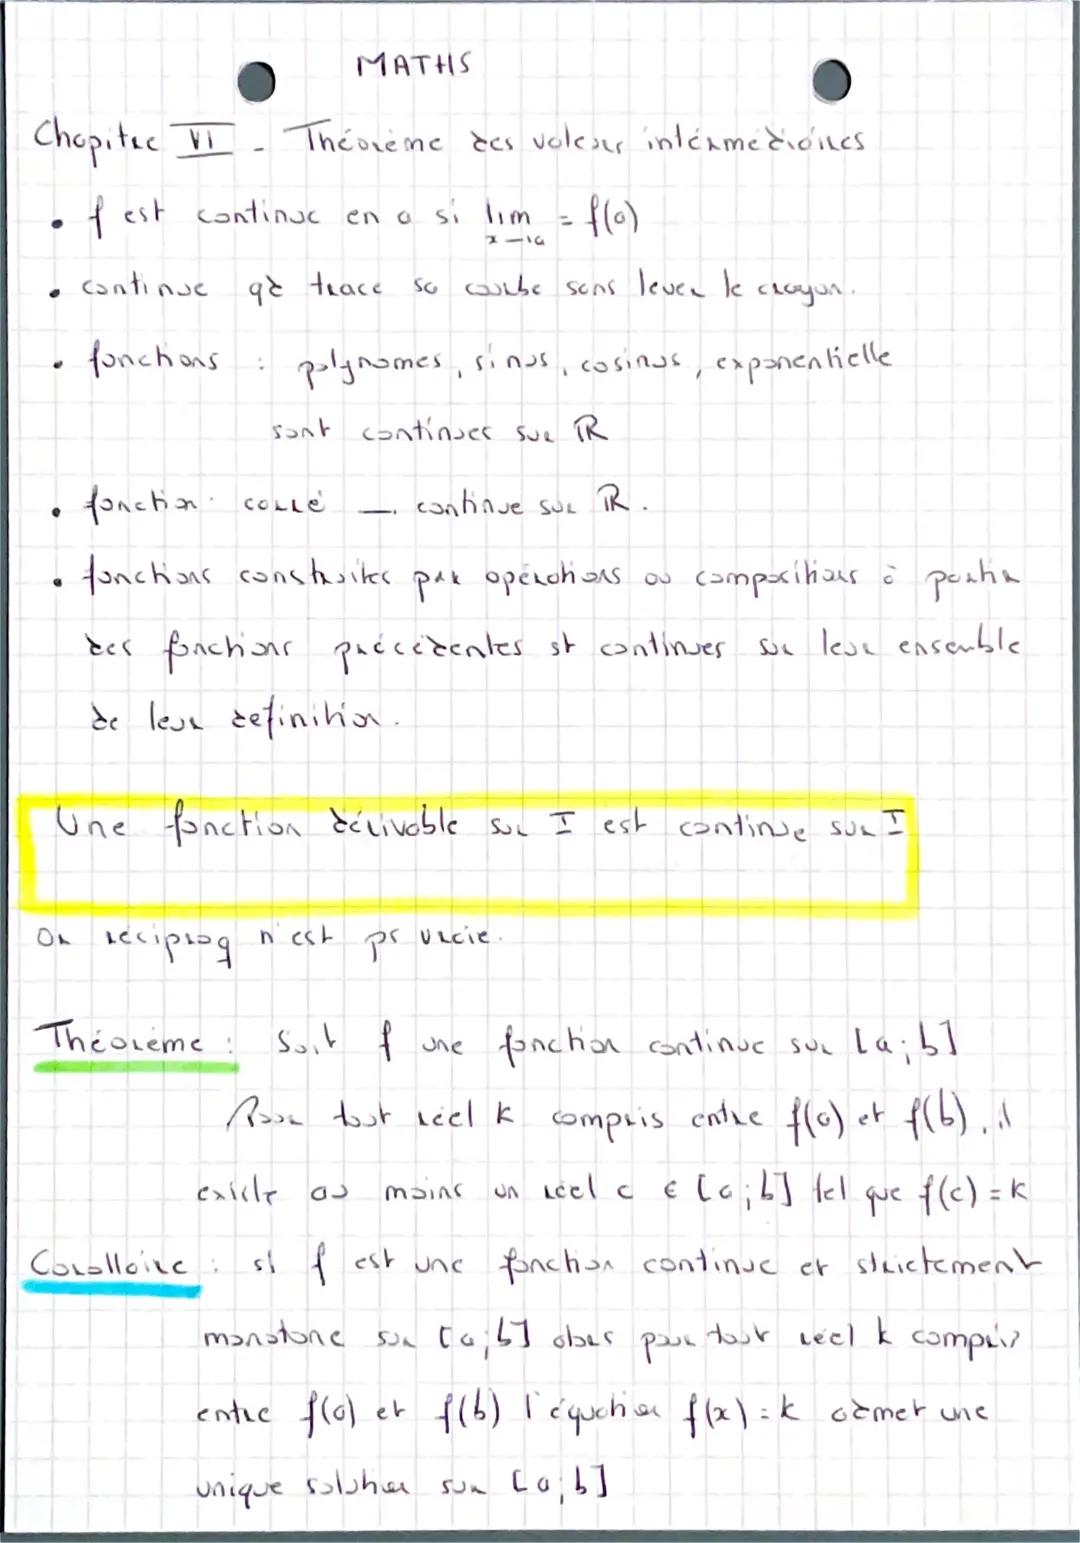 MATHS
Chapitre VI - Théorème des valeurs intérmédiaires
• f est continue en a si lim = f(a)
x→a
• continue qd trace sa courbe sans lever le crayon.
• fonctions : polynomes, sinus, cosinus, exponentielle
sont continues sur ℝ
• fonction carré → continue sur ℝ.
• fonctions construites par opérations ou compositions à partir
des fonctions précédentes st continues sur leur ensemble
de leur definition.
Une fonction dérivable sur I est continue sur I
réciproq n'est ps vraie.
Théorème : Soit f une fonction continue sur [a;b]
Pour tout réel k compris entre f(a) et f(b), il
existe au moins un réel c ∈ [a;b] tel que f(c) = k
Corollaire : si f est une fonction continue et strictement
monotone sur [a;b] alors pour tout réel k compris
entre f(a) et f(b) l'équation f(x) = k admet une
unique solution sur [a;b]